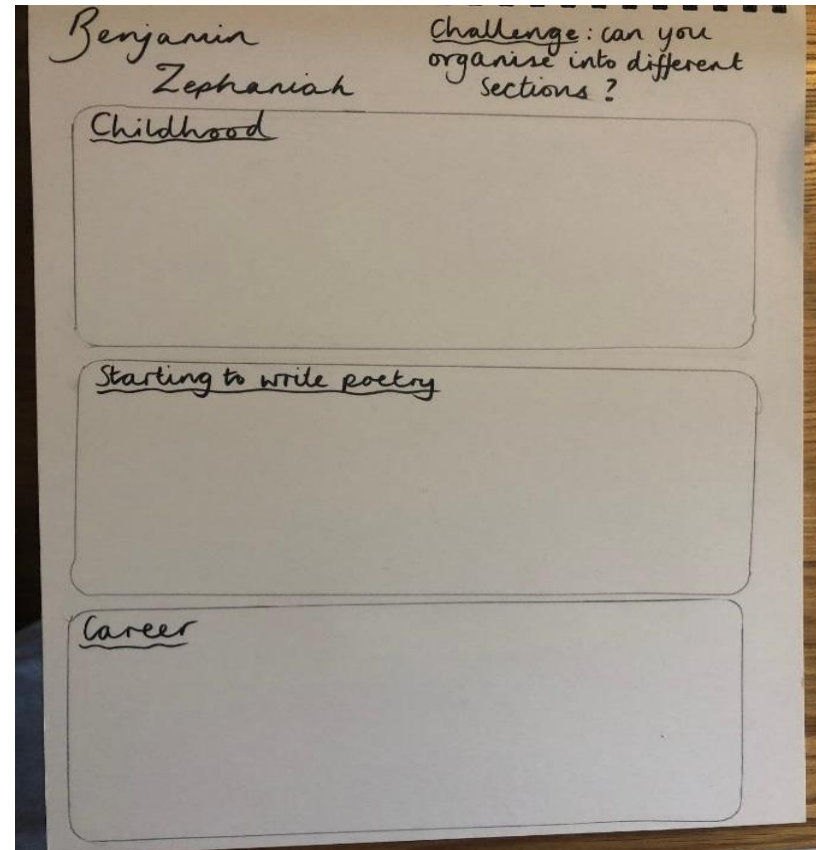 Benjamin
Zephaniah
Challenge: can you
organise into different
sections?
Childhood
Starting to write poetry
Career